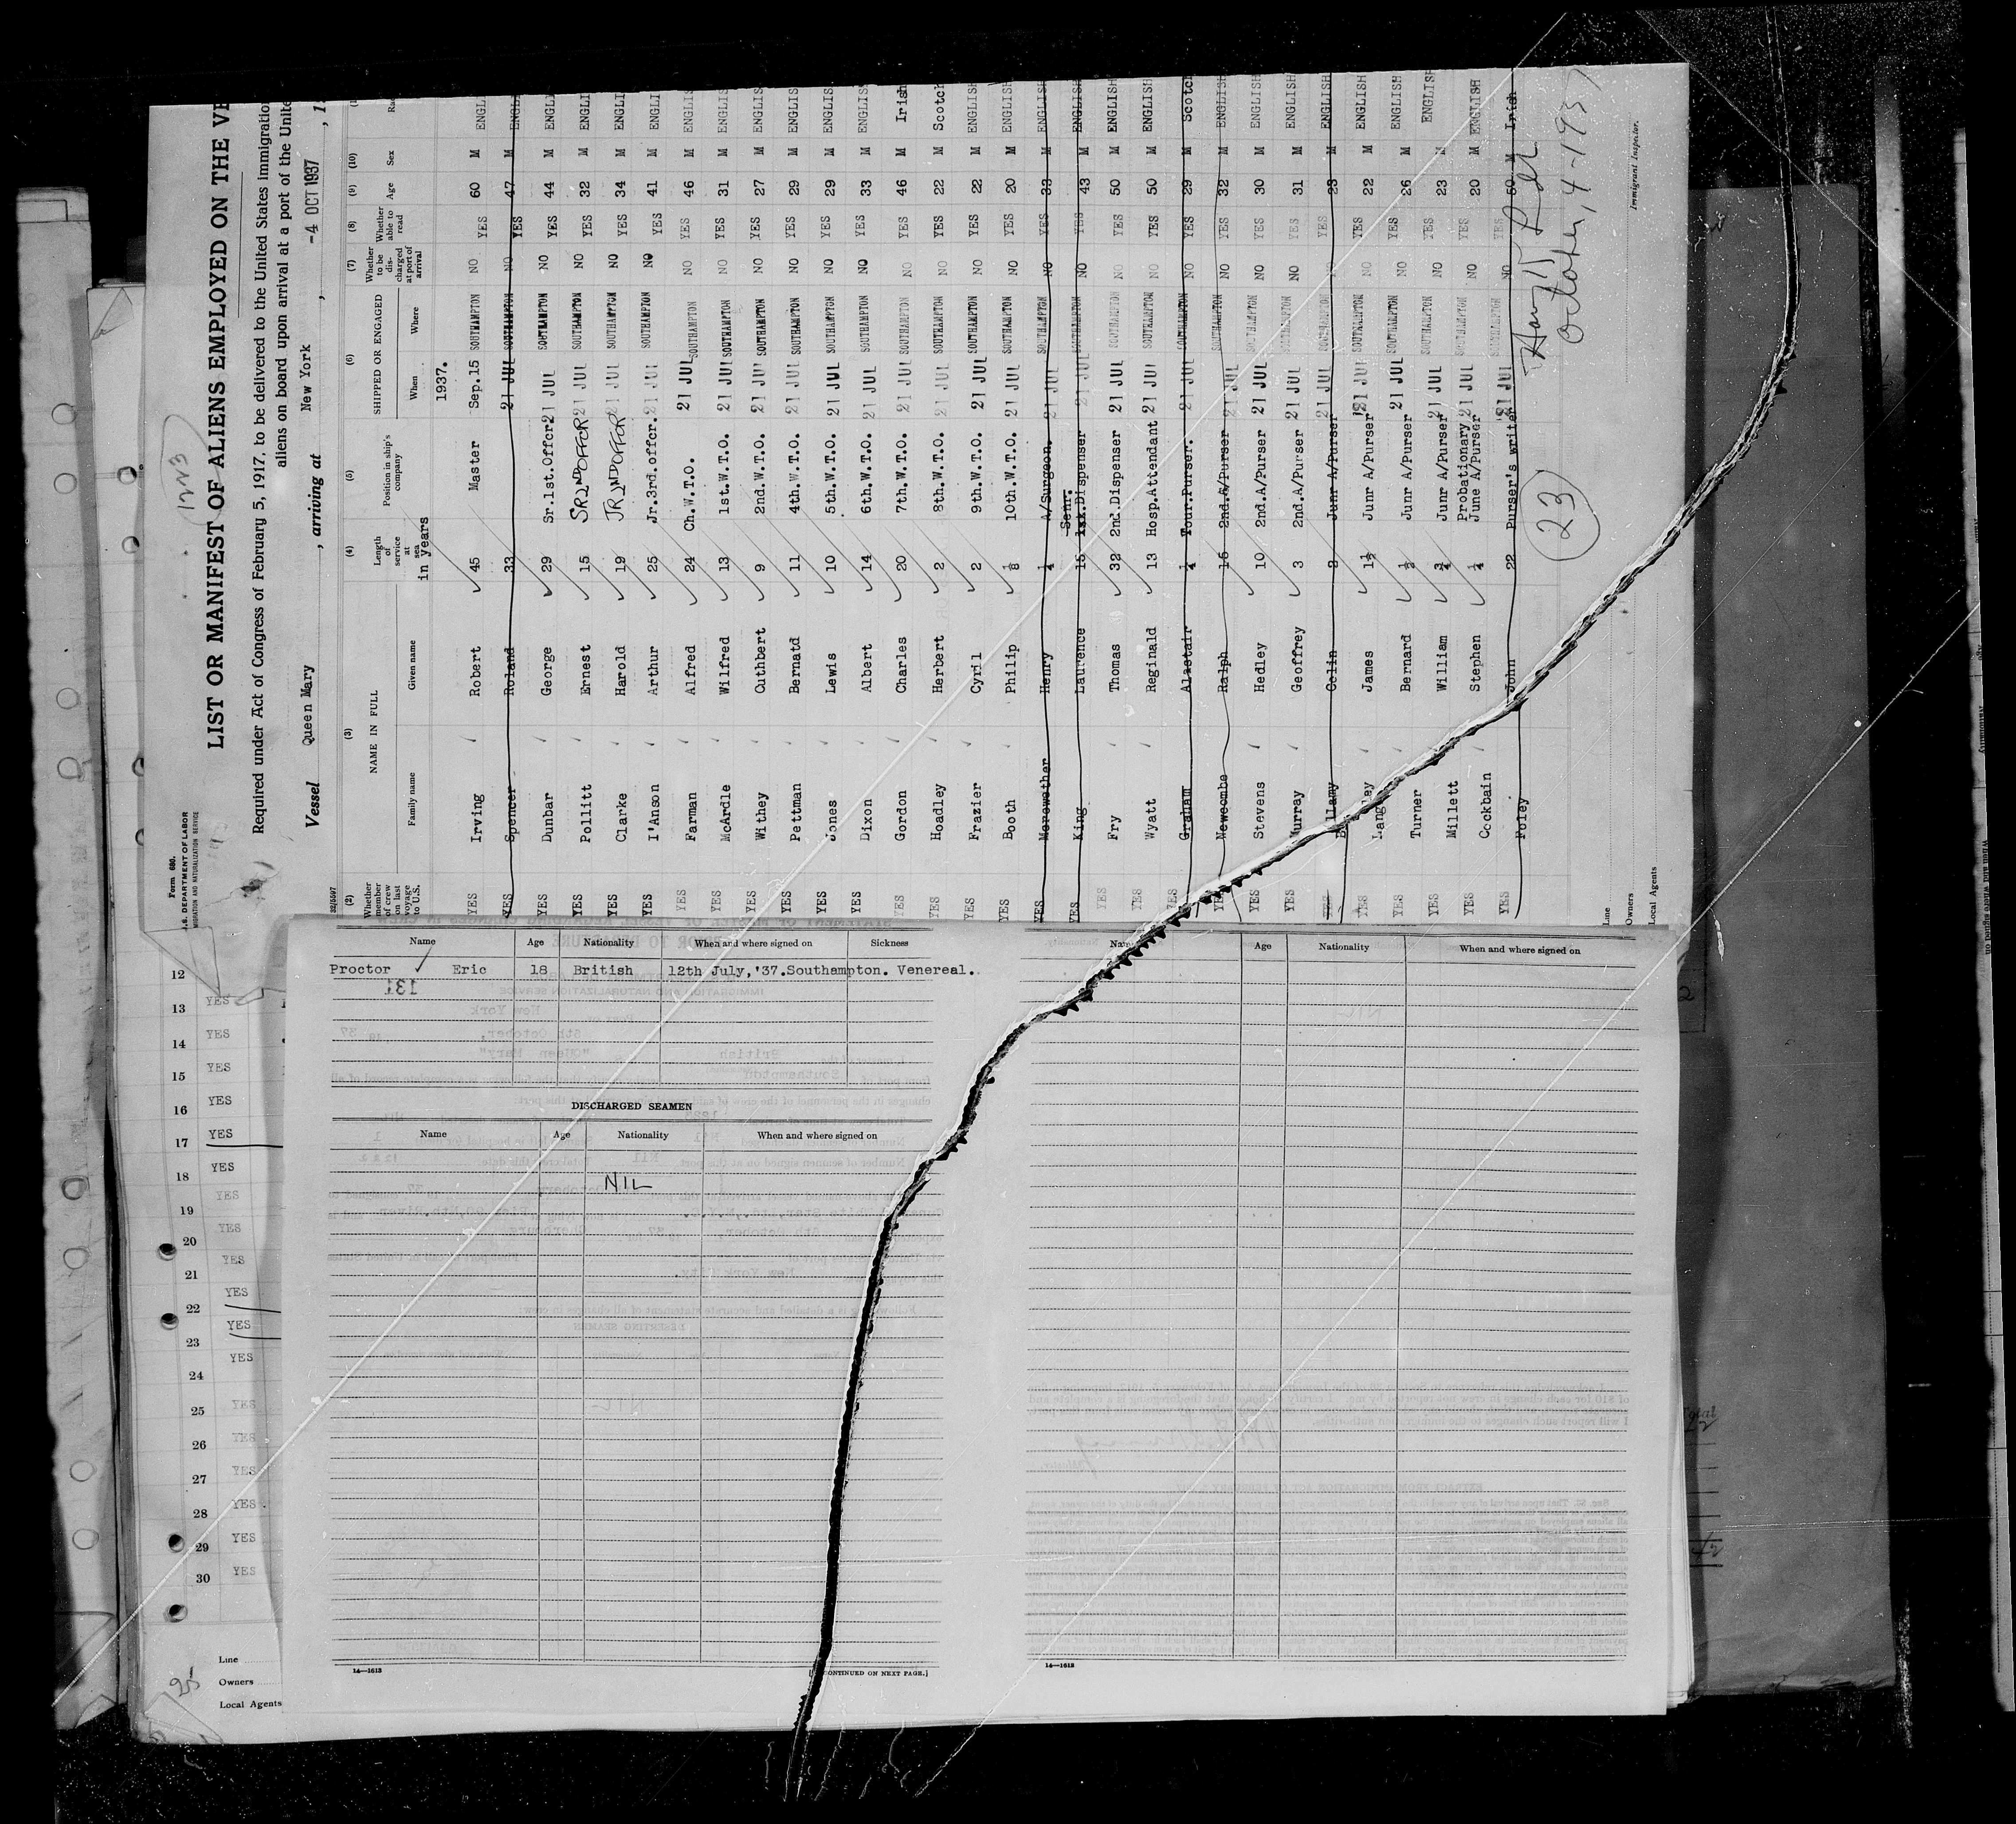 Form 680.
U.S. DEPARTMENT OF LABOR
IMMIGRATION AND NATURALIZATION SERVICE
LIST OR MANIFEST OF ALIENS EMPLOYED ON THE VE
Required under Act of Congress of February 5, 1917, to be delivered to the United States immigration
aliens on board upon arrival at a port of the Unite
Vessel Queen Mary , arriving at New York , -4 OCT 1937 , 1
(2) (3) (4) (5) (6) (7) (8) (9) (10)
Whether member of crew on last voyage to U.S. NAME IN FULL Family name Given name Length of service at sea in years Position in ship's company SHIPPED OR ENGAGED When Where Whether to be discharged at port of arrival Whether able to read Age Sex
1937.
YES Irving Robert 45 Master Sep.15 SOUTHAMPTON NO YES 60 M ENGLI
YES Spencer Roland 33 21 JUL SOUTHAMPTON NO YES 47 M ENGLI
YES Dunbar George 29 Sr.1st.Offcr. 21 JUL SOUTHAMPTON NO YES 44 M ENGLI
YES Pollitt Ernest 15 SR 2ND OFFCR 21 JUL SOUTHAMPTON NO YES 32 M ENGLI
YES Clarke Harold 19 JR 2ND OFFCR 21 JUL SOUTHAMPTON NO YES 34 M ENGLI
YES I'Anson Arthur 25 Jr.3rd.offcr. 21 JUL SOUTHAMPTON NO YES 41 M ENGLI
YES Farman Alfred 24 Ch.W.T.O. 21 JUL SOUTHAMPTON NO YES 46 M ENGLIS
YES McArdle Wilfred 13 1st.W.T.O. 21 JUL SOUTHAMPTON NO YES 31 M ENGLIS
YES Withey Cuthbert 9 2nd.W.T.O. 21 JUL SOUTHAMPTON NO YES 27 M ENGLIS
YES Pettman Bernatd 11 4th.W.T.O. 21 JUL SOUTHAMPTON NO YES 29 M ENGLIS
YES Jones Lewis 10 5th.W.T.O. 21 JUL SOUTHAMPTON NO YES 29 M ENGLIS
YES Dixon Albert 14 6th.W.T.O. 21 JUL SOUTHAMPTON NO YES 33 M ENGLIS
YES Gordon Charles 20 7th.W.T.O. 21 JUL SOUTHAMPTON NO YES 46 M Irish
YES Hoadley Herbert 2 8th.W.T.O. 21 JUL SOUTHAMPTON NO YES 22 M Scotch
YES Frazier Cyril 2 9th.W.T.O. 21 JUL SOUTHAMPTON NO YES 22 M ENGLISH
YES Booth Philip 1/8 10th.W.T.O. 21 JUL SOUTHAMPTON NO YES 20 M ENGLISH
YES Merewether Henry 1/4 A/Surgeon. 21 JUL SOUTHAMPTON NO YES 33 M ENGLISH
YES King Laurence 15 Senr. Dispenser 21 JUL SOUTHAMPTON NO YES 43 M ENGLISH
YES Fry Thomas 32 2nd.Dispenser 21 JUL SOUTHAMPTON NO YES 50 M ENGLISH
YES Wyatt Reginald 13 Hosp.Attendant 21 JUL SOUTHAMPTON NO YES 50 M ENGLISH
YES Graham Alastair 1/4 Tour.Purser. 21 JUL SOUTHAMPTON NO YES 29 M Scotch
YES Newcombe Ralph 16 2nd.A/Purser 21 JUL SOUTHAMPTON NO YES 32 M ENGLISH
YES Stevens Hedley 10 2nd.A/Purser 21 JUL SOUTHAMPTON NO YES 30 M ENGLISH
YES Murray Geoffrey 3 2nd.A/Purser 21 JUL SOUTHAMPTON NO YES 31 M ENGLISH
YES Colin Junr A/Purser 21 JUL SOUTHAMPTON NO YES 23 M ENGLISH
YES James 1½ Junr A/Purser 21 JUL SOUTHAMPTON NO YES 22 M ENGLISH
YES Turner Bernard ½ Junr A/Purser 21 JUL SOUTHAMPTON NO YES 26 M ENGLISH
YES Millett William ¾ Junr A/Purser 21 JUL SOUTHAMPTON NO YES 23 M ENGLISH
YES Cockbain Stephen ¼ Probationary June A/Purser 21 JUL SOUTHAMPTON NO YES 20 M ENGLISH
YES Foley John 22 Purser's writer 21 JUL SOUTHAMPTON NO YES 50 M Irish
23
October, 4-1937
Immigrant Inspector.
Line
Owners
Local Agents
Name Age Nationality When and where signed on Sickness
Proctor Eric 18 British 12th July,'37.Southampton. Venereal.
131
DISCHARGED SEAMEN
Name Age Nationality When and where signed on
NIL
14—1613
CONTINUED ON NEXT PAGE.]
Name Age Nationality When and where signed on
14—1613
12
13 YES
14 YES
15 YES
16 YES
17 YES
18 YES
19 YES
20 YES
21 YES
22 YES
23 YES
24 YES
25 YES
26 YES
27 YES
28 YES
29 YES
30 YES
Line
Owners
Local Agents
25